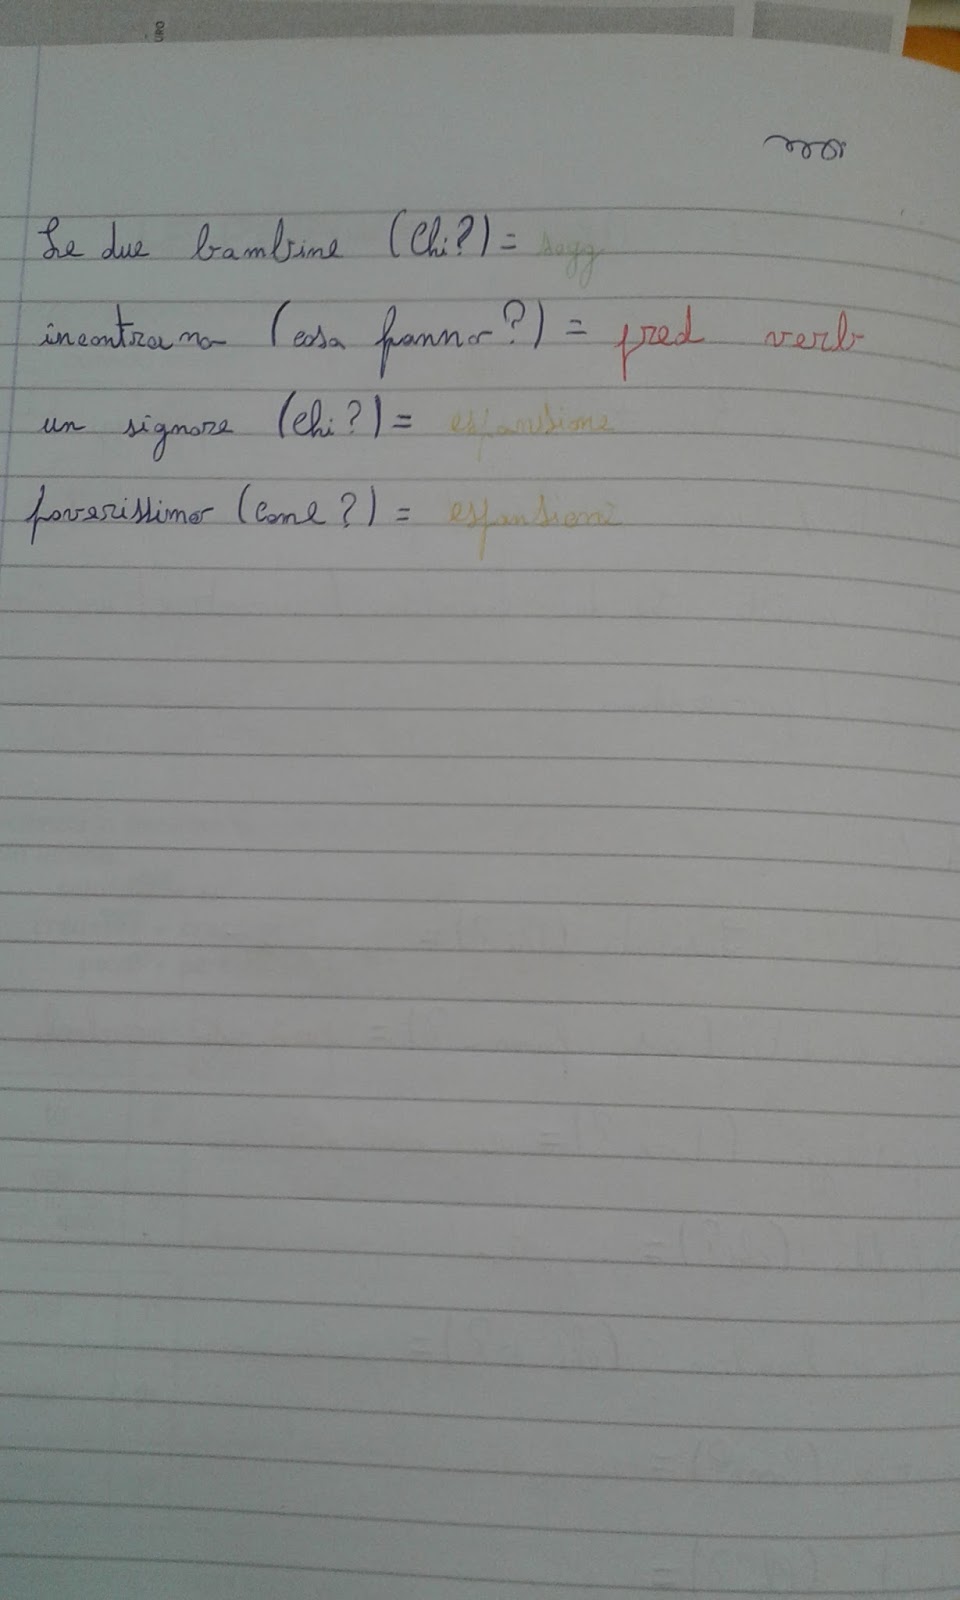 URO
Le due bambine (Chi?) = sogg
incontrano (cosa fanno?) = pred verb
un signore (chi?) = espansione
poverissimo (come?) = espansione